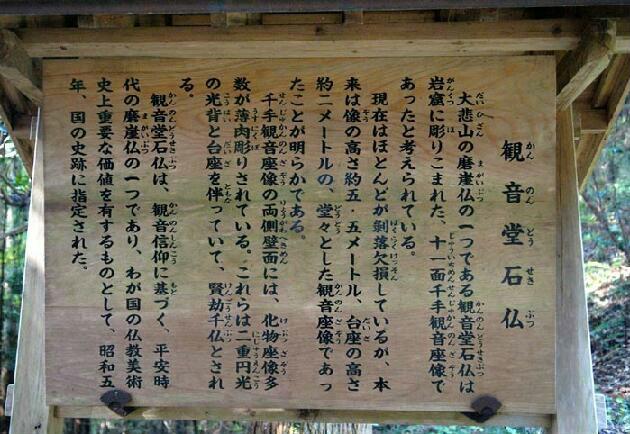 観音堂石仏
大悲山の磨崖仏の一つである観音堂石仏は
岩窟に彫りこまれた、十一面千手観音座像で
あったと考えられている。
現在はほとんどが剝落欠損しているが、本
来は像の高さ約五・五メートル、台座の高さ
約二メートルの、堂々とした観音座像であっ
たことが明らかである。
千手観音座像の両側壁面には、化物座像多
数が薄肉彫りされている。これらは二重円光
の光背と台座を伴っていて、賢劫千仏とされ
る。
観音堂石仏は、観音信仰に基づく、平安時
代の磨崖仏の一つであり、わが国の仏教美術
史上重要な価値を有するものとして、昭和五
年、国の史跡に指定された。